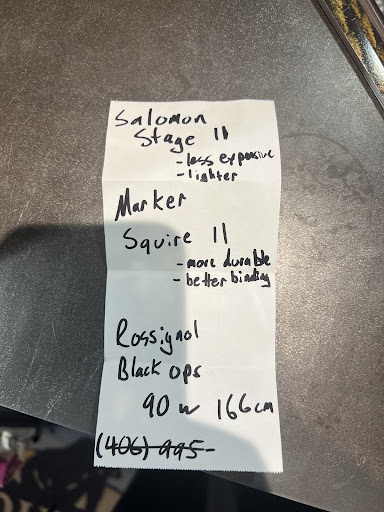 Salomon
Stage 11
- less expensive
- lighter
Marker
Squire 11
- more durable
- better binding
Rossignol
Black ops
90 w 166cm
(406) 995-